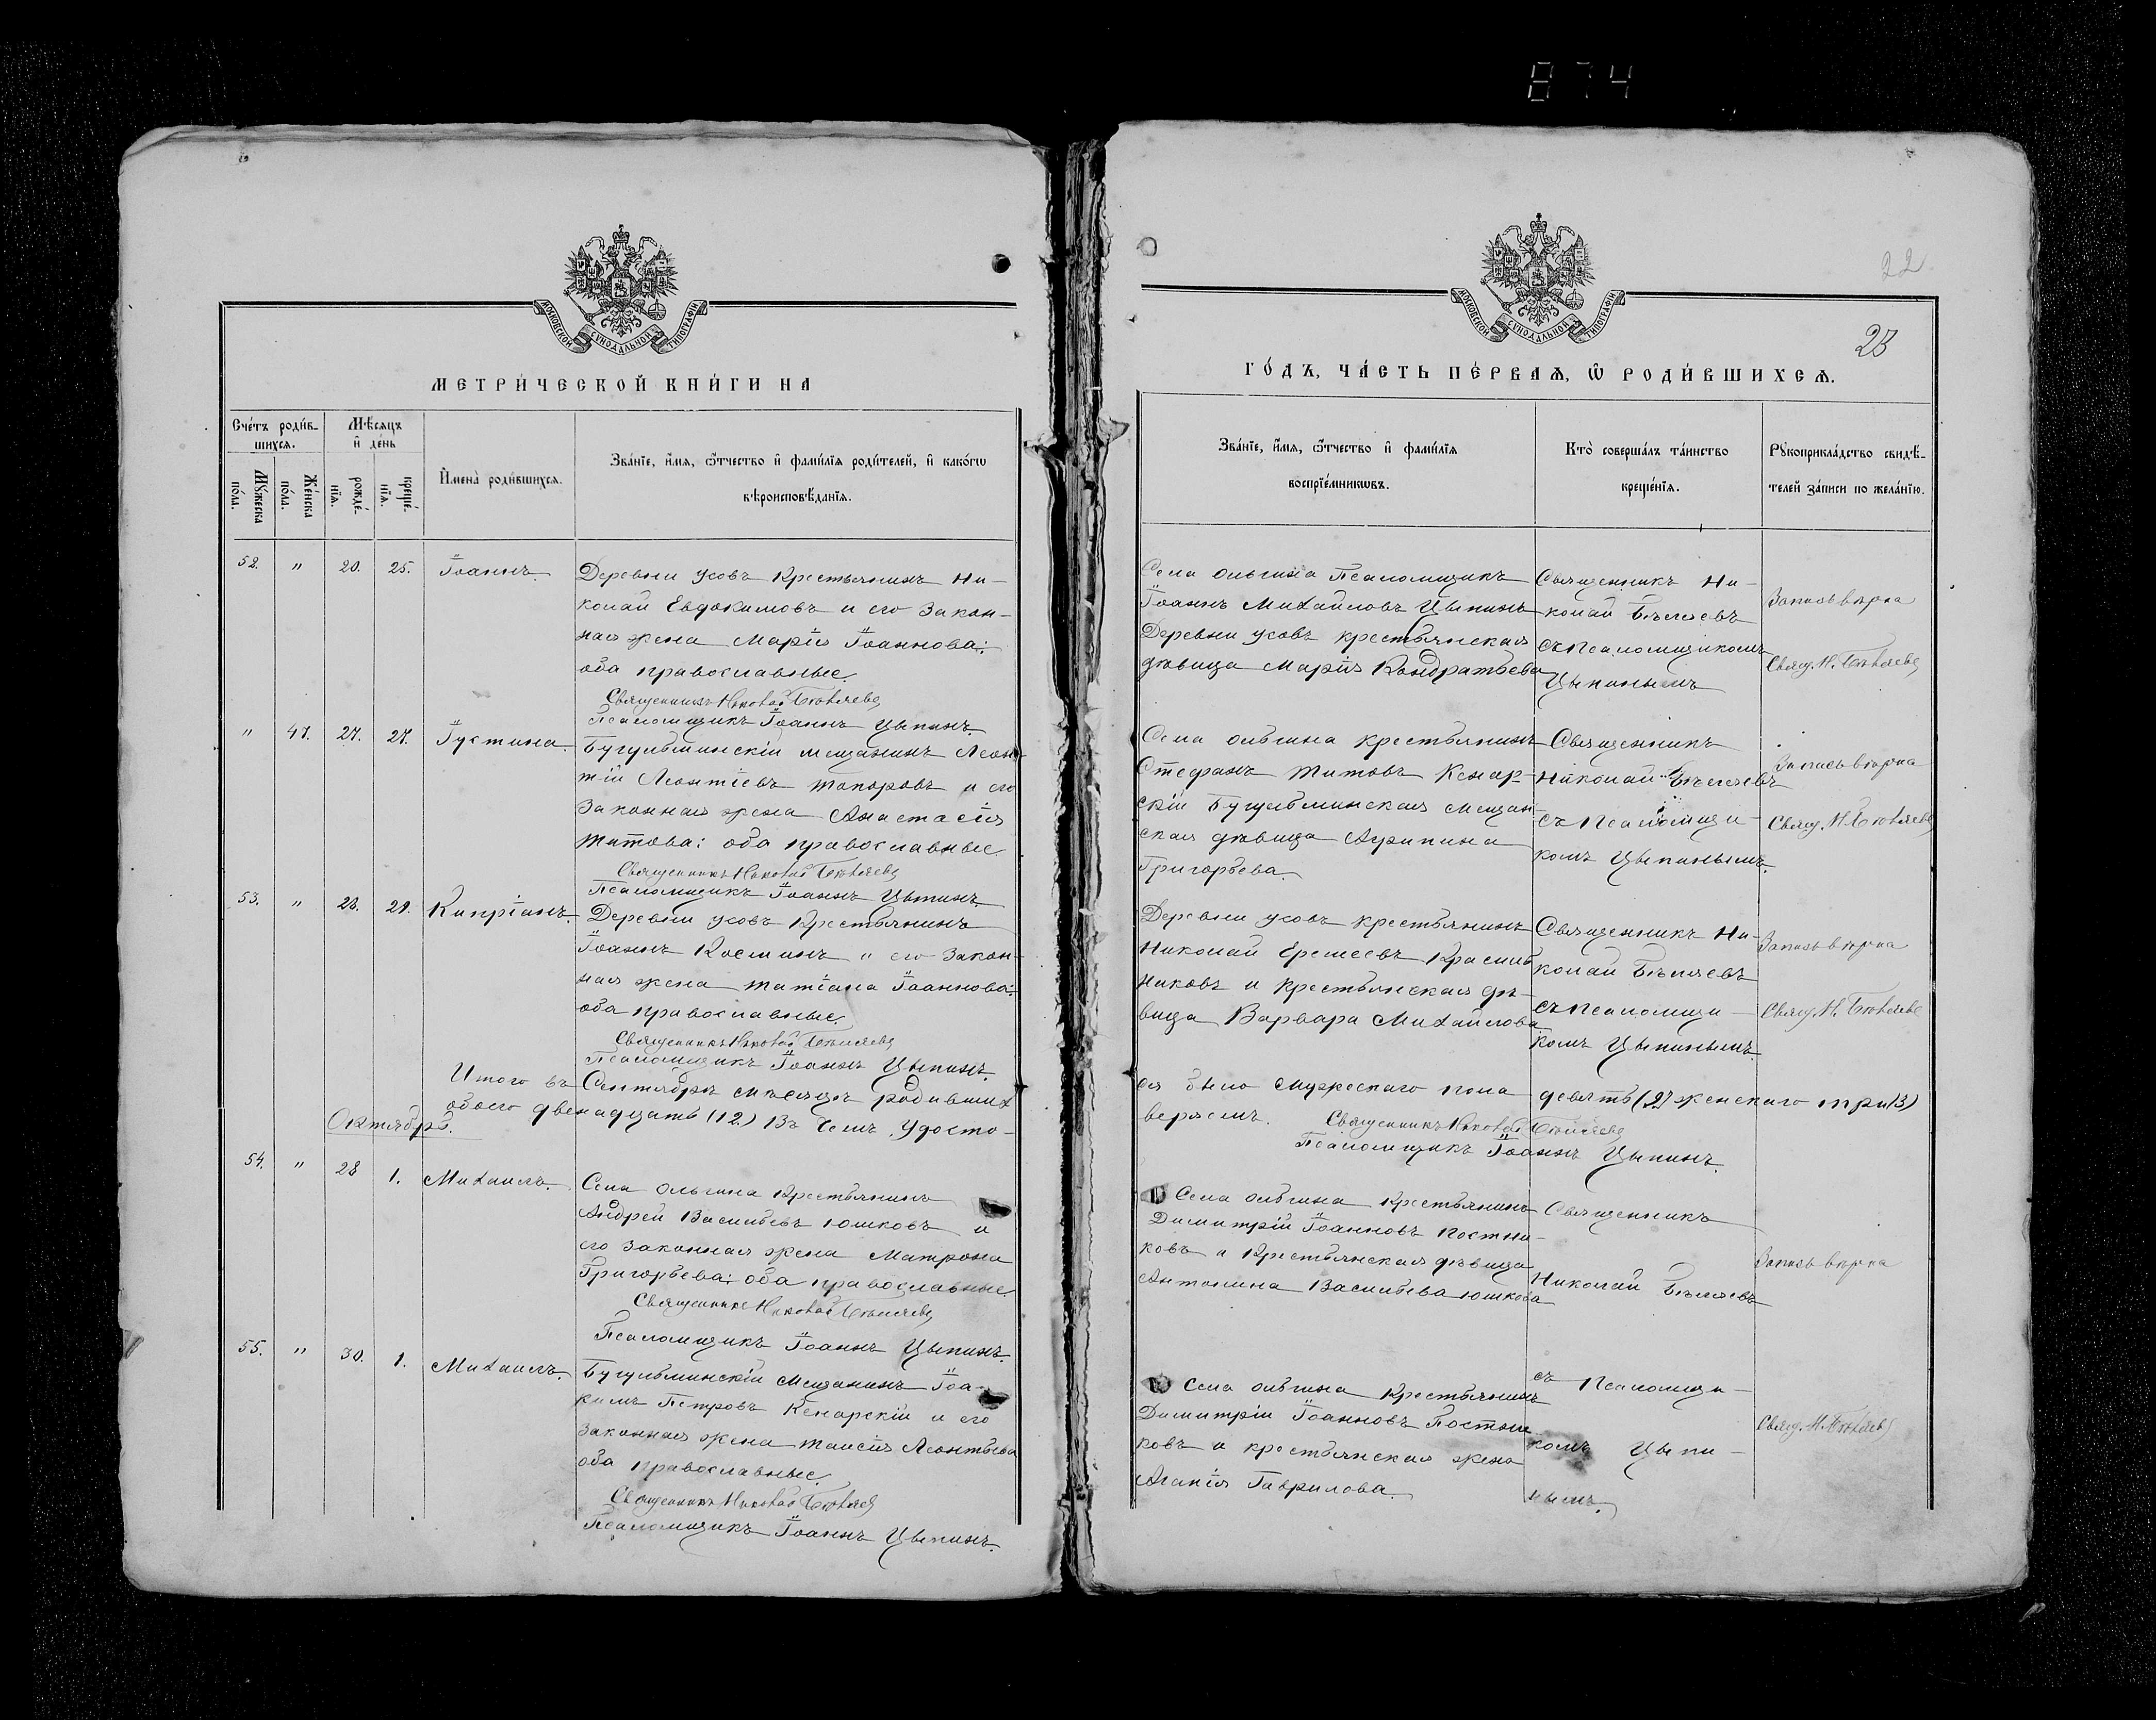 874
22
23
МОСКОВСКОЙ СУНОДАЛЬНОЙ ТИПОГРАФІИ
МЕТРИ́ЧЕСКОЙ КНИ́ГИ НА
Сче́тъ роди́в-
шихся.
Му́жеска
по́ла.
Же́нска
по́ла.
Мѣ́сяцъ
и҆ де́нь
рожде́-
нїѧ.
креще́-
нїѧ.
И҆мена̀ роди́вшихсѧ.
Зва́нїе, и҆́мѧ, ѻ҆́тчество и҆ фами́лїѧ роди́телей, и҆ како́гѡ
вѣроисповѣ́данїѧ.
52. " 20. 25. Іоаннъ.
Деревни Усовъ Крестьянинъ Ни-
колай Евдокимовъ и его закон-
ная жена Марія Іоаннова;
оба православные.
Священникъ Николай Бѣляевъ
Псаломщикъ Іоаннъ Цыпинъ.
" 47. 27. 27. Іустина.
Бугульминскій мещанинъ Леон-
тій Леонтіевъ Топоровъ и его
законная жена Анастасія
Титова; оба православные.
Священникъ Николай Бѣляевъ
Псаломщикъ Іоаннъ Цыпинъ.
53. " 28. 29. Кипріанъ.
Деревни Усовъ Крестьянинъ
Іоаннъ Косминъ и его закон-
ная жена Татіана Іоаннова;
оба православные.
Священникъ Николай Бѣляевъ
Псаломщикъ Іоаннъ Цыпинъ.
Итого въ Сентябрѣ мѣсяцѣ родивших
обоего двенадцать (12) Въ чемъ удосто-
Октябрь.
54. " 28 1. Михаилъ.
Села Ольгина Крестьянинъ
Андрей Васильевъ Юшковъ и
его законная жена Матрона
Григорьева; оба православные.
Священникъ Николай Бѣляевъ
Псаломщикъ Іоаннъ Цыпинъ.
55. " 30. 1. Михаилъ.
Бугульминскій мещанинъ Іоа-
кимъ Петровъ Кенарскій и его
законная жена Таисія Леонтьева
оба православные.
Священникъ Николай Бѣляевъ
Псаломщикъ Іоаннъ Цыпинъ.
МОСКОВСКОЙ СУНОДАЛЬНОЙ ТИПОГРАФІИ
ГО́ДЪ, ЧА́СТЬ ПЕ́РВАѦ, Ѽ РОДИ́ВШИХСѦ.
Зва́нїе, и҆́мѧ, ѻ҆́тчество и҆ фами́лїѧ
воспрїе́мникѡвъ.
Кто̀ соверша́лъ та́инство
креще́нїѧ.
Рꙋкоприкла́дство свидѣ́-
телей за́писи по жела́нїю.
Села Ольгина Псаломщикъ
Іоаннъ Михайловъ Цыпинъ
Деревни Усовъ крестьянская
дѣвица Марія Кондратьева
Священникъ Ни-
колай Бѣляевъ
съ Псаломщикомъ
Цыпинымъ
Запись вѣрна
Свящ. Н. Бѣляевъ
Села Ольгина крестьянинъ
Стефанъ Титовъ Кенар-
скій Бугульминская мещан-
ская дѣвица Агрипина
Григорьева.
Священникъ
Николай Бѣляевъ
съ Псаломщи-
комъ Цыпинымъ.
Запись вѣрна
Свящ. Н. Бѣляевъ
Деревни Усовъ крестьянинъ
Николай Еремеевъ Красиль
никовъ и крестьянская дѣ-
вица Варвара Михайлова
Священникъ Ни-
колай Бѣляевъ
съ Псаломщи-
комъ Цыпинымъ.
Запись вѣрна
Свящ. Н. Бѣляевъ
ся было мужескаго пола девять (9) женскаго три (3)
веряемъ. Священникъ Николай Бѣляевъ
Псаломщикъ Іоаннъ Цыпинъ.
Села Ольгина Крестьянинъ
Димитрій Іоанновъ Постни-
ковъ и Крестьянская дѣвица
Антонина Васильева Юшкова
Священникъ
Николай Бѣляевъ
Запись вѣрна
Села Ольгина Крестьянинъ
Димитрій Іоанновъ Постни-
ковъ и крестьянская жена
Агапія Гаврилова.
съ Псаломщи-
комъ Цыпи-
нымъ.
Свящ. Н. Бѣляевъ